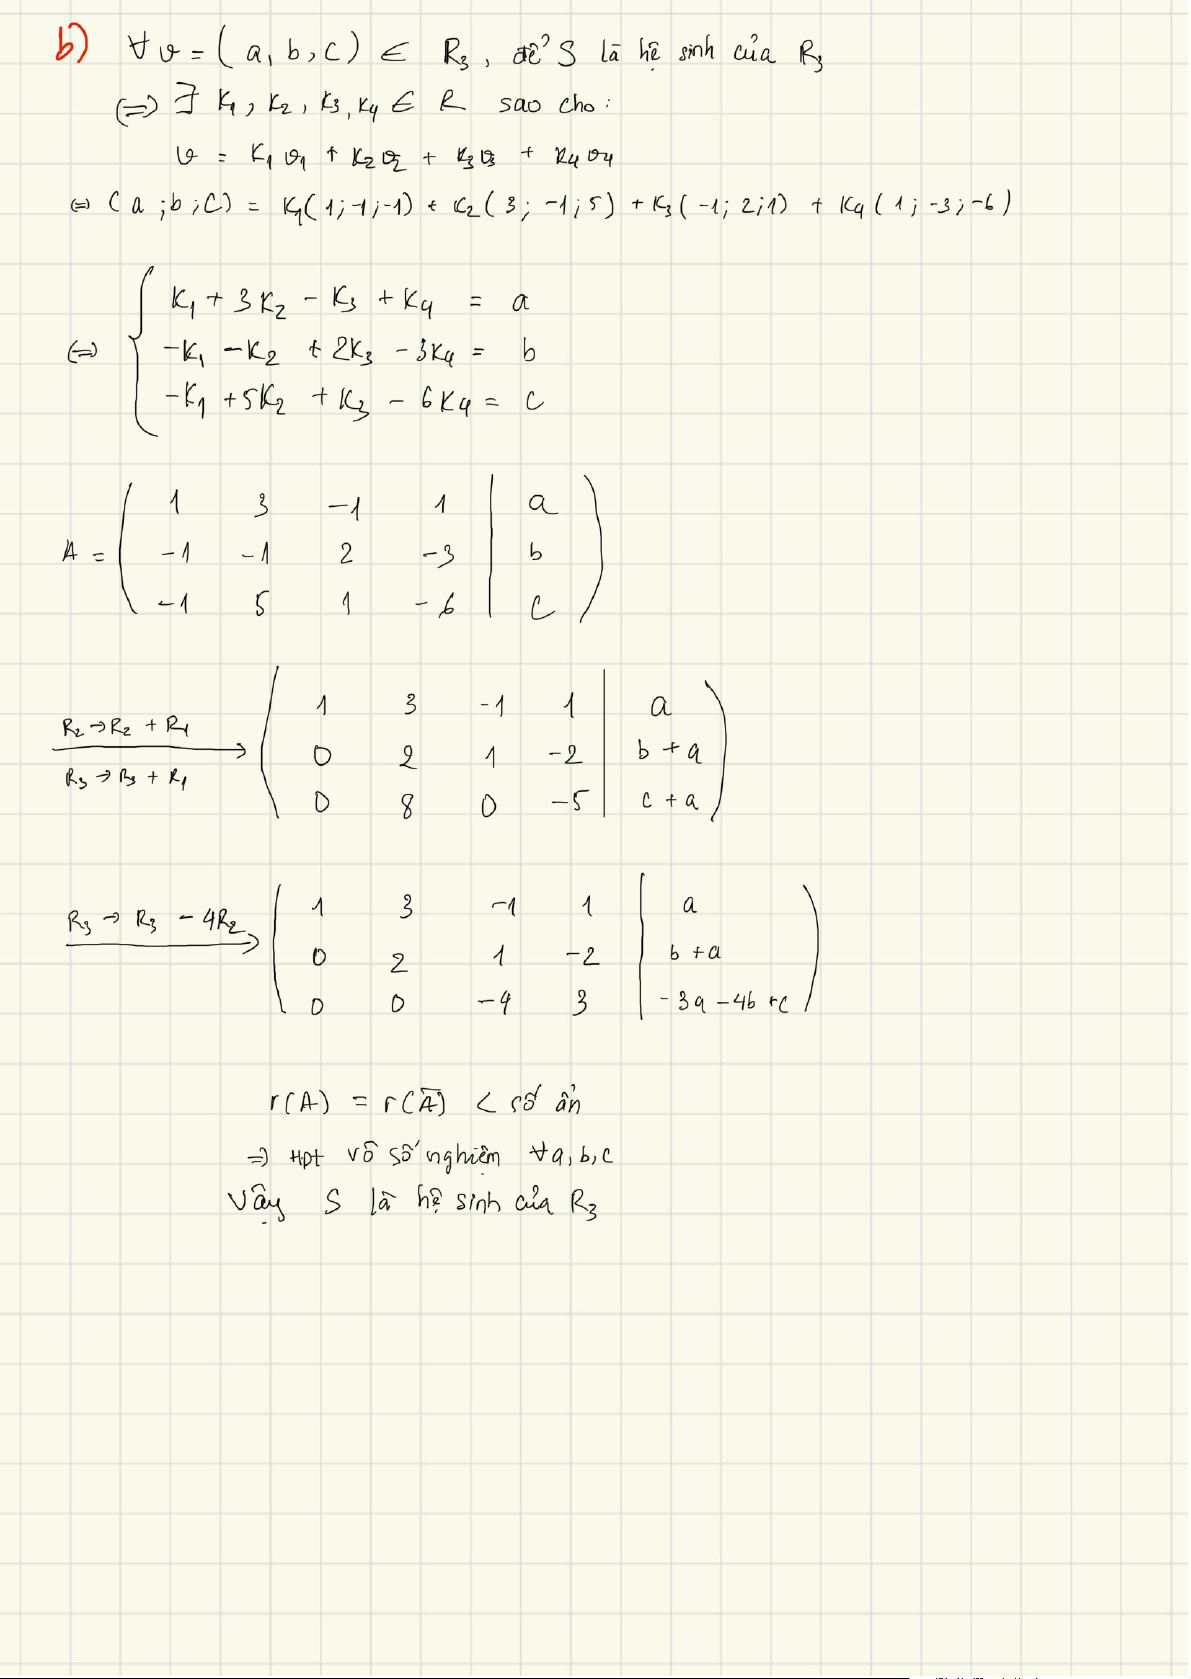 b) ∀ v = ( a, b, c ) ∈ R₃, để S là hệ sinh của R₃
(=) ∃ K₁, K₂, K₃, K₄ ∈ R sao cho:
v = K₁v₁ + K₂v₂ + K₃v₃ + K₄v₄
(=) (a ; b ; c) = K₁(1; -1; -1) + K₂(3; -1; 5) + K₃(-1; 2; 1) + K₄(1; -3; -6)
K₁ + 3K₂ - K₃ + K₄ = a
(=) { -K₁ - K₂ + 2K₃ - 3K₄ = b
-K₁ + 5K₂ + K₃ - 6K₄ = c
1 3 -1 1 | a
A = ( -1 -1 2 -3 | b )
-1 5 1 -6 | c
1 3 -1 1 | a
R₂ → R₂ + R₁
0 2 1 -2 | b + a
R₃ → R₃ + R₁
0 8 0 -5 | c + a
1 3 -1 1 | a
R₃ → R₃ - 4R₂
0 2 1 -2 | b + a
0 0 -4 3 | -3a - 4b + c
r(A) = r(A̅) < số ẩn
=) Hpt vô số nghiệm ∀a, b, c
Vậy S là hệ sinh của R₃